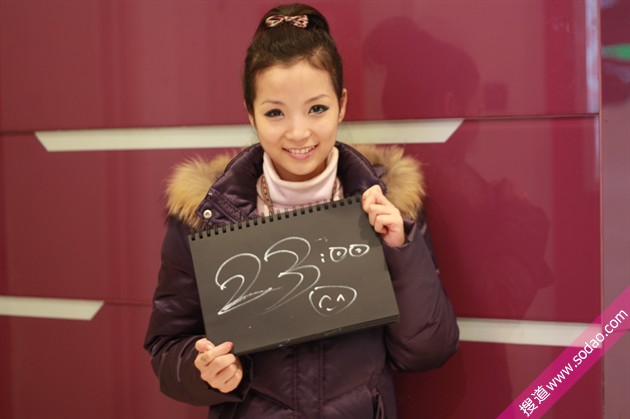 23:00
搜道www.sodao.com